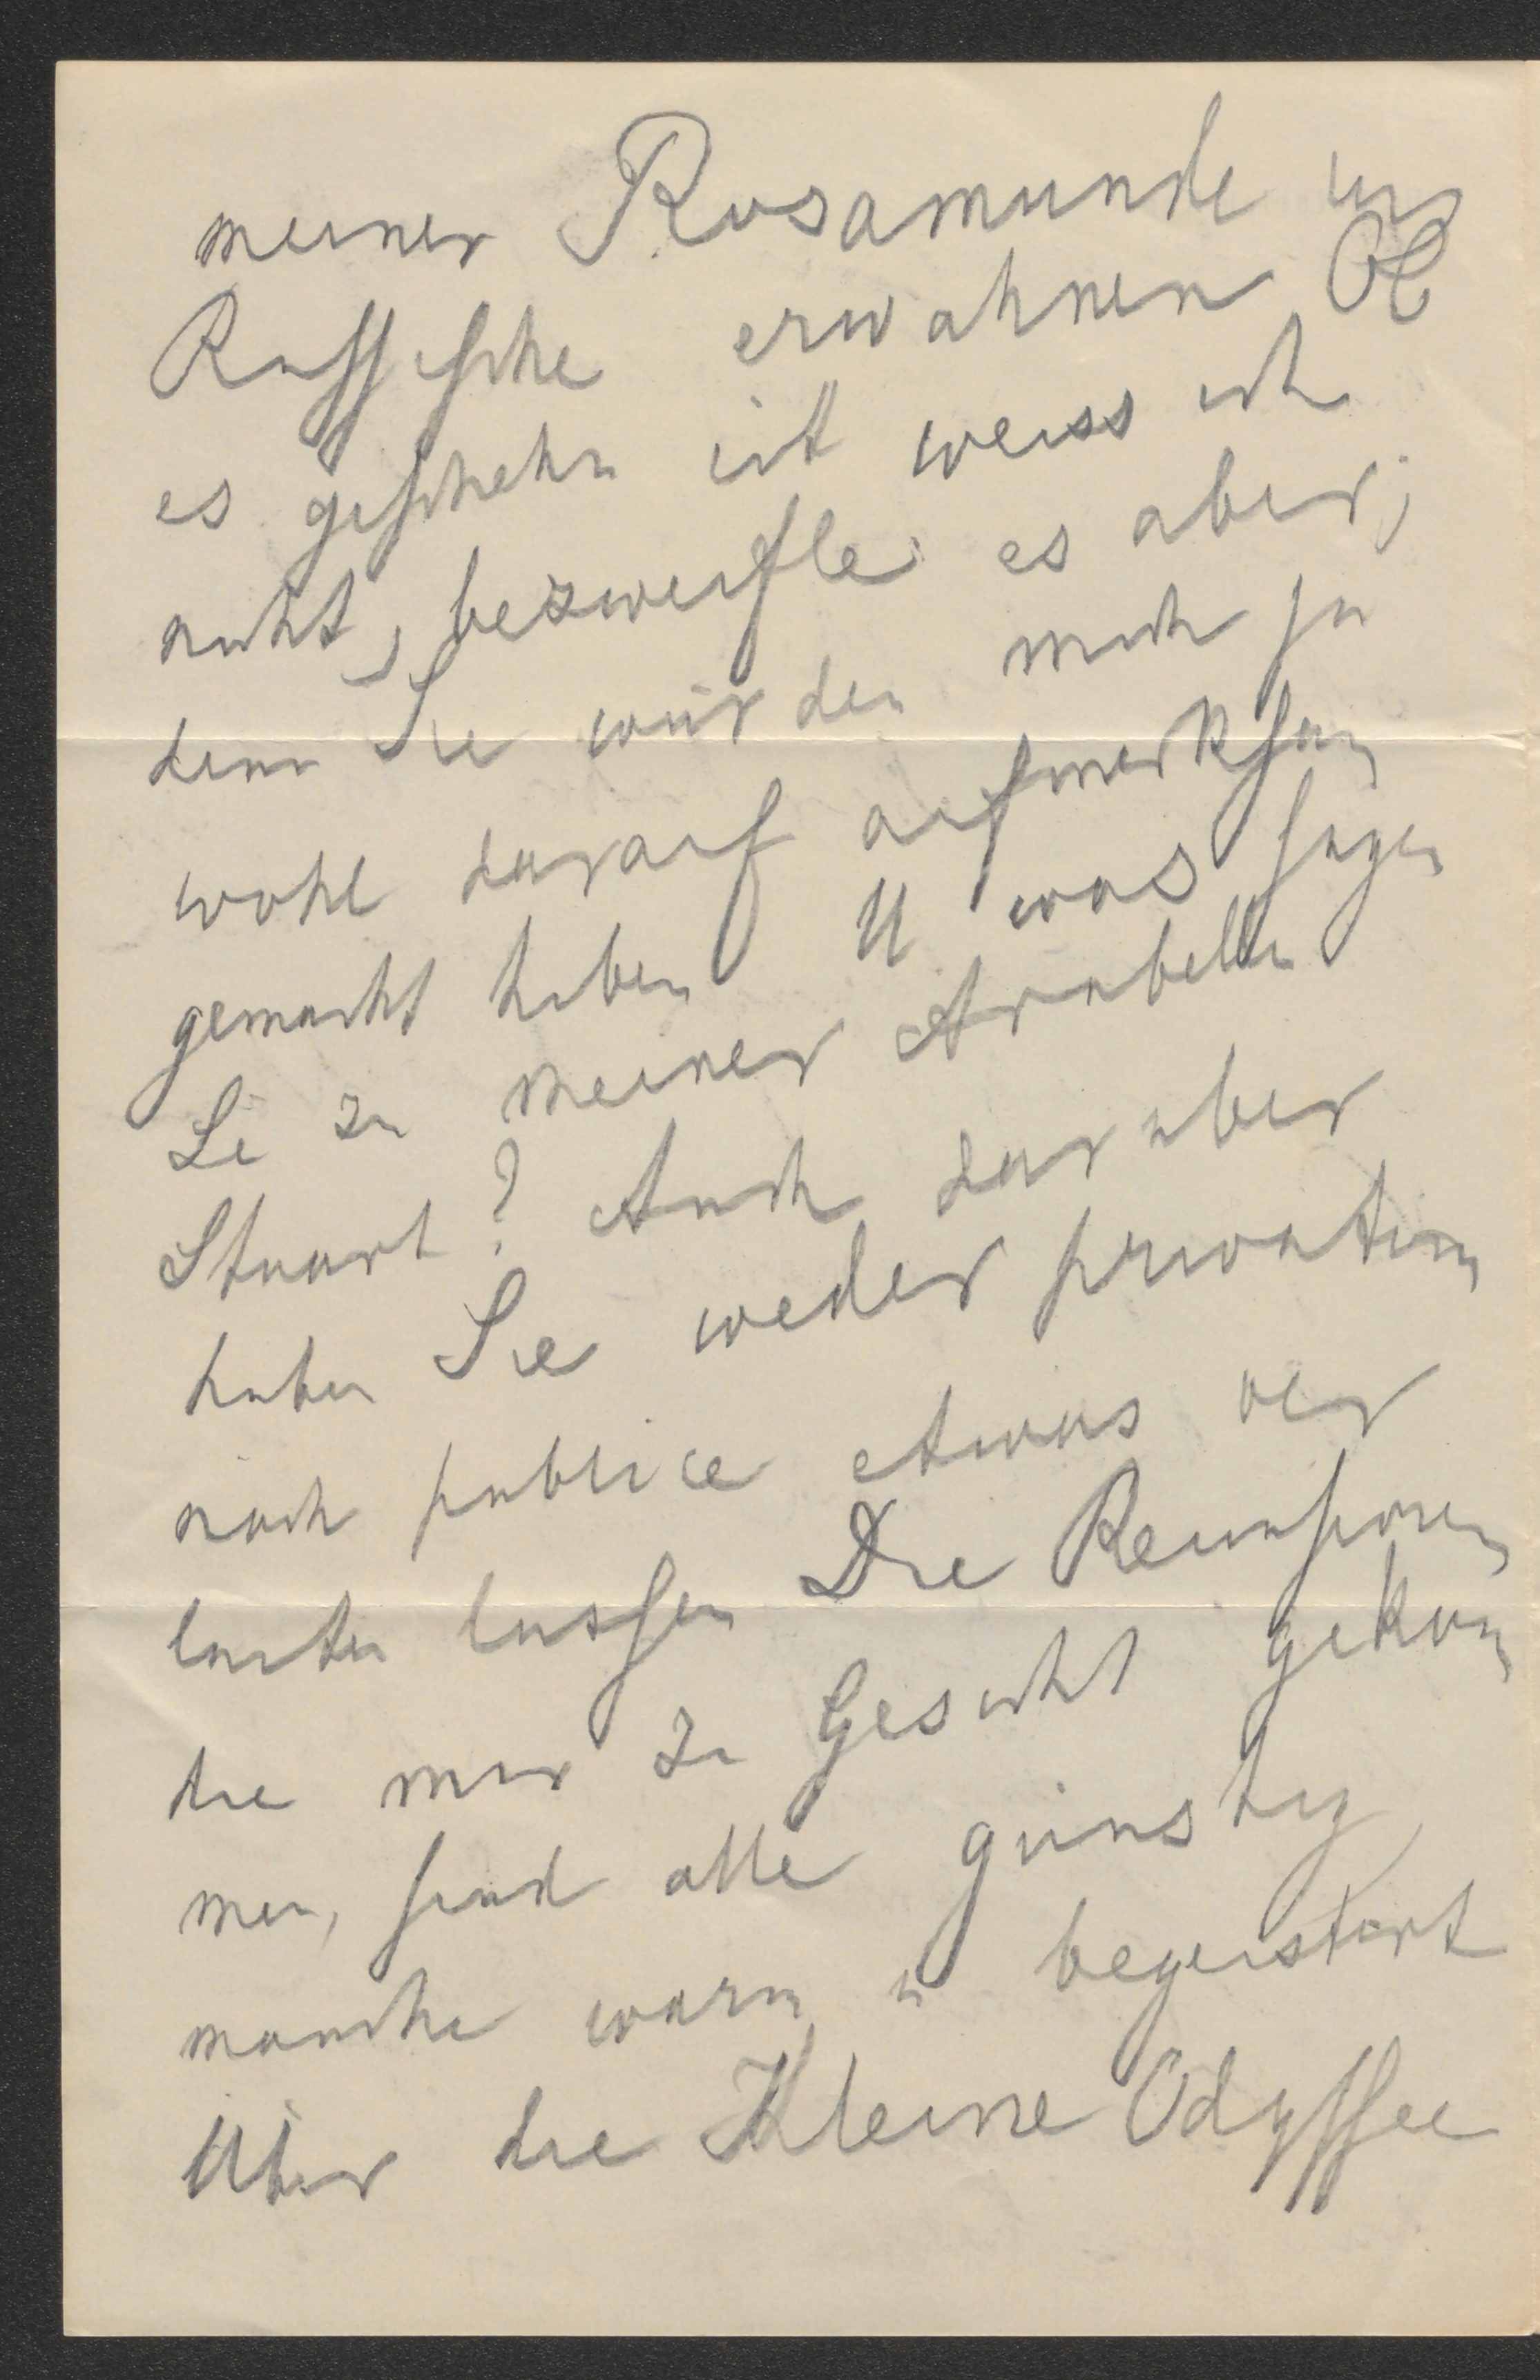 meiner Rosamunde ins
Russische erwähnen Ob
es geschehn ist weiss ich
nicht, bezweifle es aber,
denn Sie würden mich ja
wohl darauf aufmerksam
gemacht haben U was sagen
Si zu meiner Arabella
Stuart? Auch darüber
haben Sie weder privatim
noch publice etwas ver
lauten lassen Die Recensionen
die mir zu Gesicht gekom
men, sind alle günstig
manche warm u begeistert
Über die Kleine Odyssee